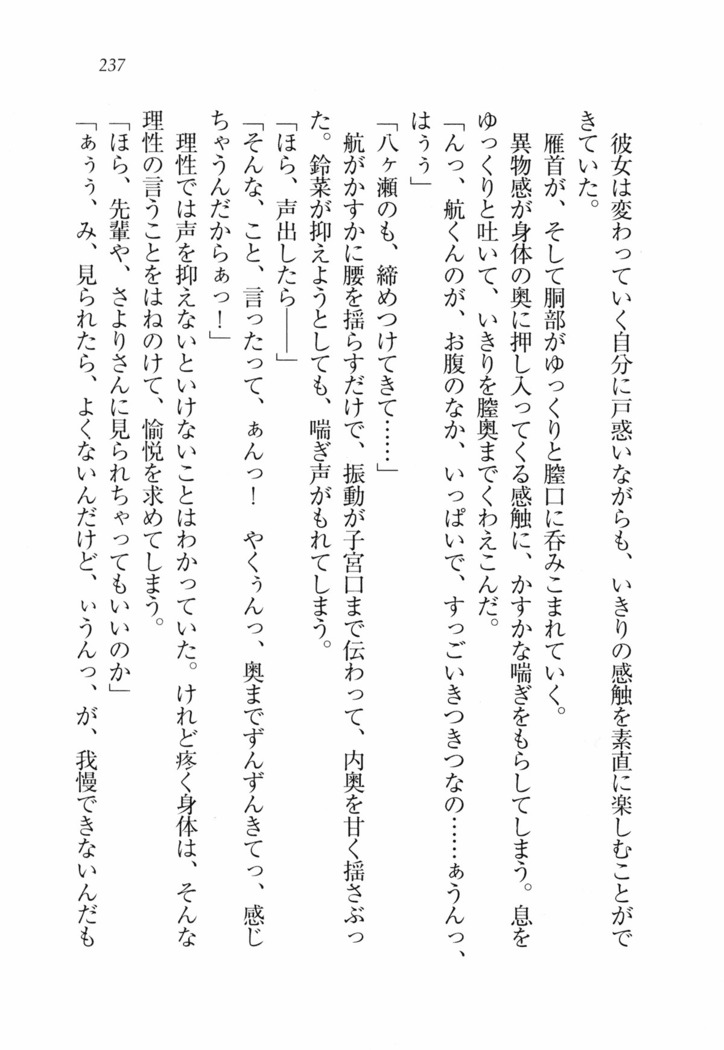 237
彼女は変わっていく自分に戸惑いながらも、いきりの感触を素直に楽しむことがで
きていた。
雁首が、そして胴部がゆっくりと膣口に呑みこまれていく。
異物感が身体の奥に押し入ってくる感触に、かすかな喘ぎをもらしてしまう。息を
ゆっくりと吐いて、いきりを膣奥までくわえこんだ。
「んっ、航くんのが、お腹のなか、いっぱいで、すっごいきつきつなの……ぁうんっ、
はぅぅ」
「八ヶ瀬のも、締めつけてきて……」
航がかすかに腰を揺らすだけで、振動が子宮口まで伝わって、内奥を甘く揺さぶっ
た。鈴菜が抑えようとしても、喘ぎ声がもれてしまう。
「ほら、声出したら――」
「そんな、こと、言ったって、ぁんっ！　やくぅんっ、奥までずんずんきてっ、感じ
ちゃうんだからぁっ！」
理性では声を抑えないといけないことはわかっていた。けれど疼く身体は、そんな
理性の言うことをはねのけて、愉悦を求めてしまう。
「ほら、先輩や、さよりさんに見られちゃってもいいのか」
「ぁぅぅ、み、見られたら、よくないんだけど、ぃうんっ、が、我慢できないんだも